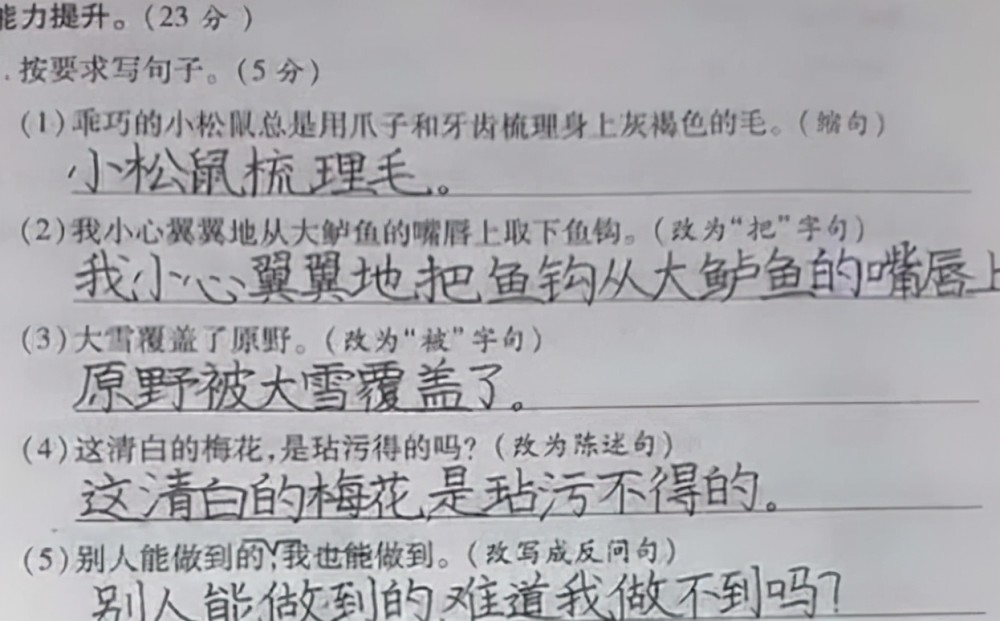 能力提升。(23 分 )
.按要求写句子。(5 分)
(1)乖巧的小松鼠总是用爪子和牙齿梳理身上灰褐色的毛。(缩句)
小松鼠梳理毛。
(2)我小心翼翼地从大鲈鱼的嘴唇上取下鱼钩。(改为“把”字句)
我小心翼翼地把鱼钩从大鲈鱼的嘴唇上
(3)大雪覆盖了原野。(改为“被”字句)
原野被大雪覆盖了。
(4)这清白的梅花,是玷污得的吗?(改为陈述句)
这清白的梅花,是玷污不得的。
(5)别人能做到的,我也能做到。(改写成反问句)
别人能做到的,难道我做不到吗?